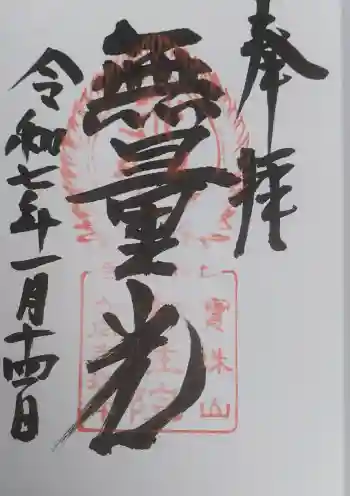 奉拝
無量光
令和七年一月十四日
寶珠山